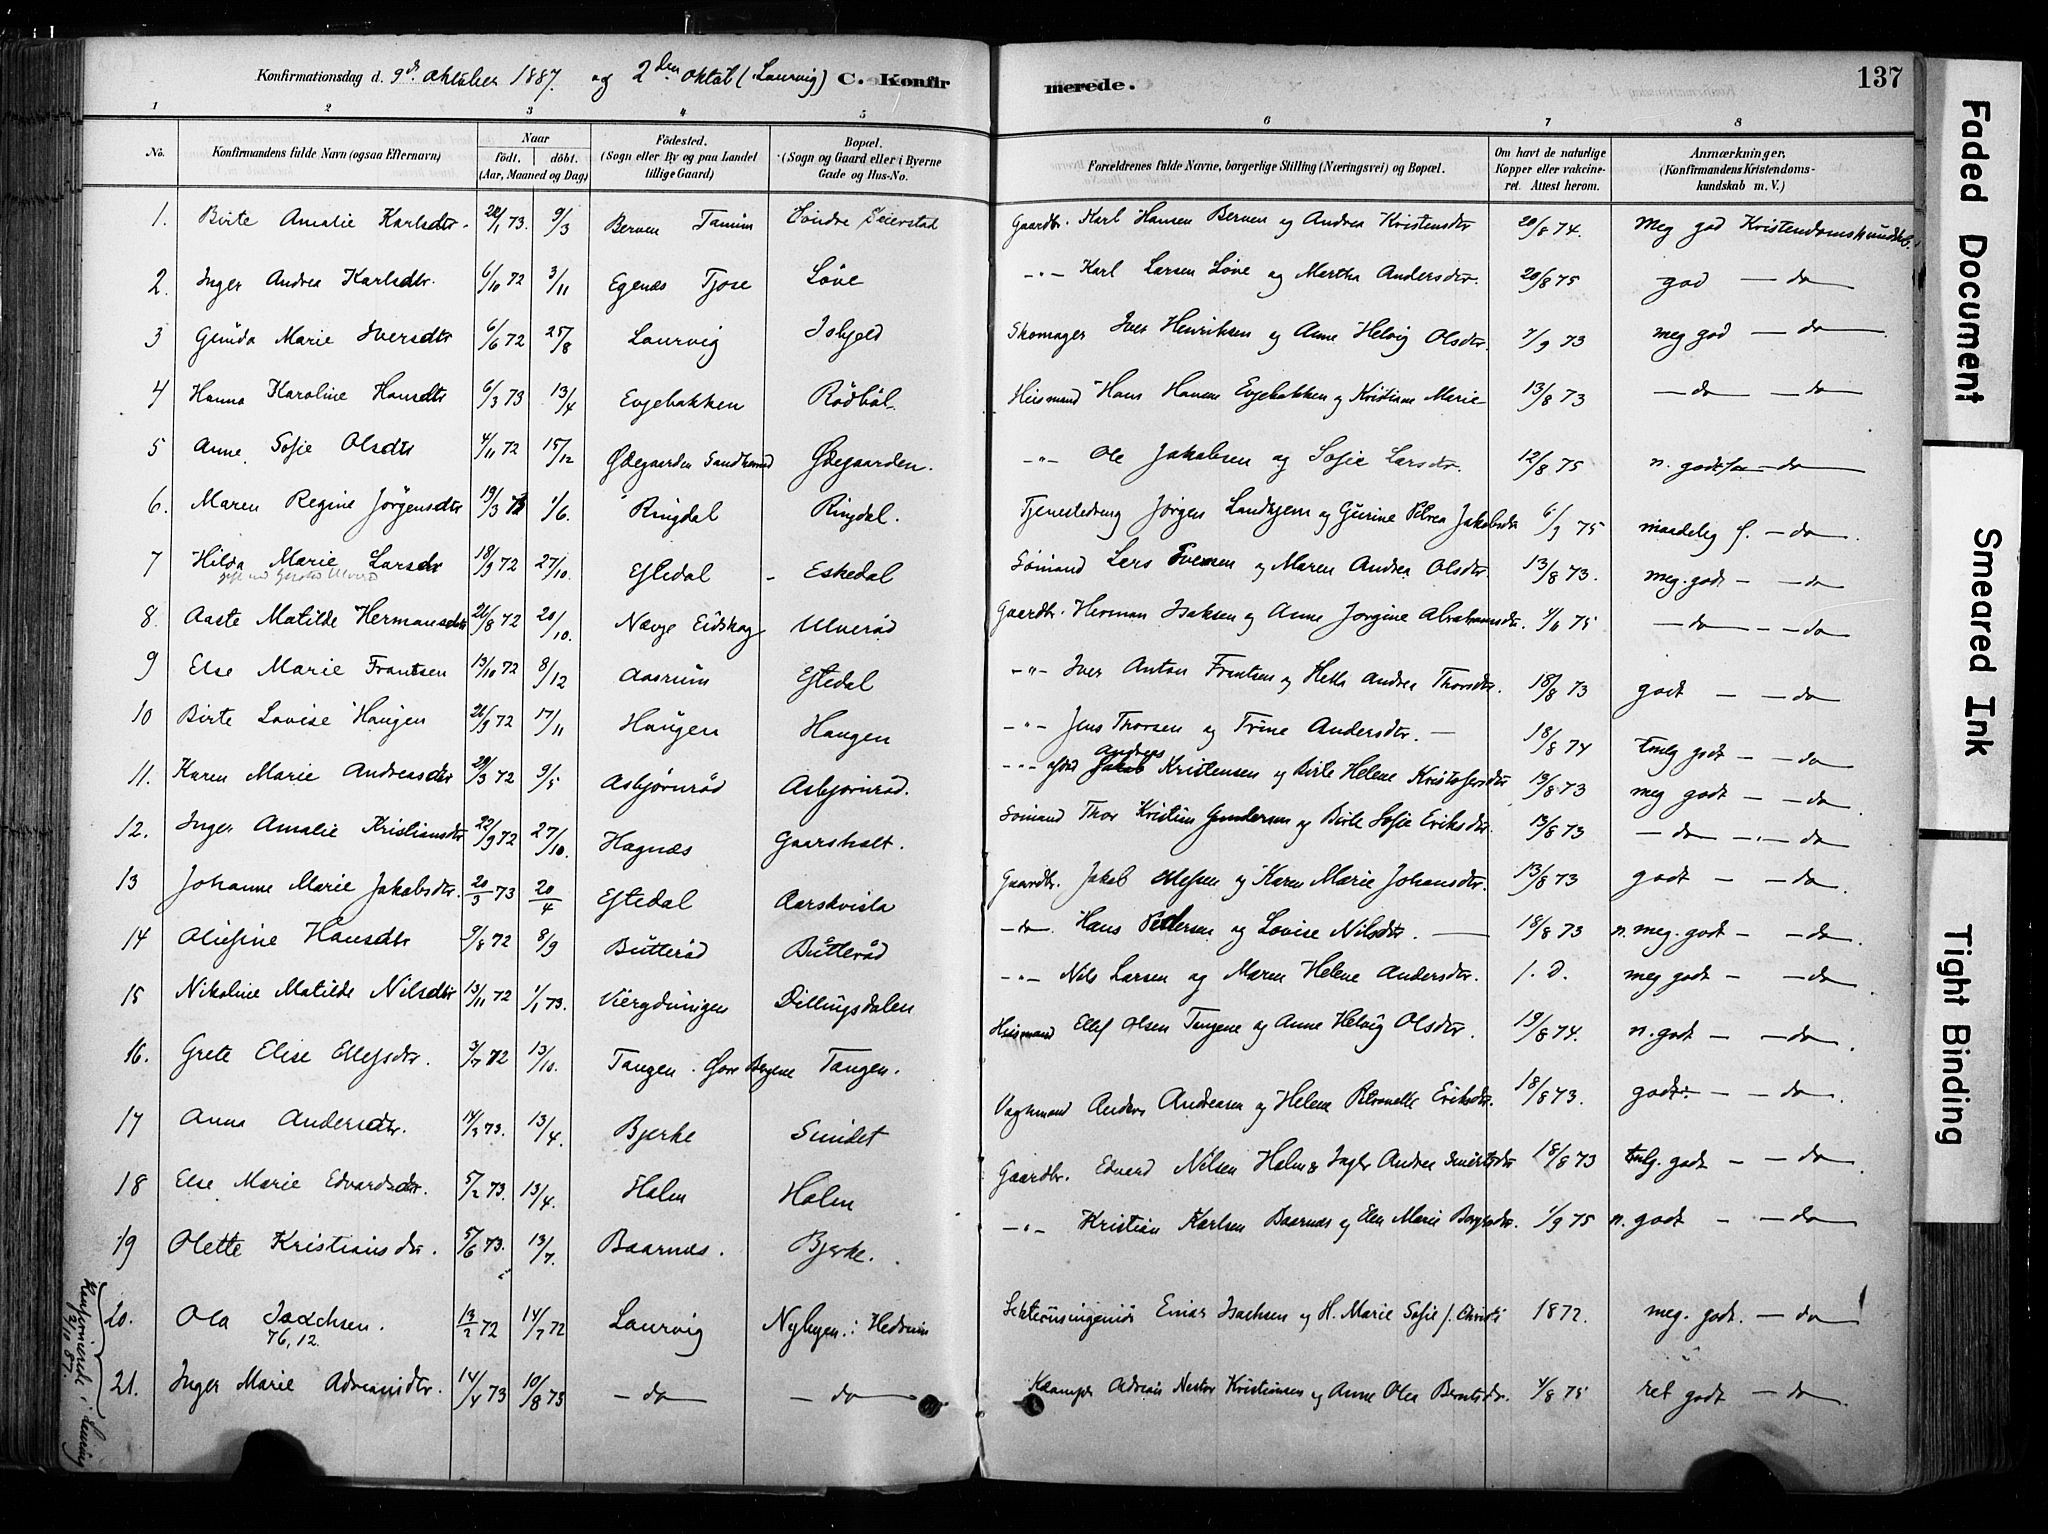 Konfirmationsdag d. 9de Oktober 1887. og 2den Oktob (Laurvig) C. Konfirmerede. 137
1 2 3 4 5 6 7 8
No. Konfirmandens fulde Navn (ogsaa Efternavn) Naar födt. döbt. (Aar, Maaned og Dag) Födested. (Sogn eller By og paa Landet tillige Gaard) Bopæl. (Sogn og Gaard eller i Byerne Gade og Hus-No. Forældrenes fulde Navne, borgerlige Stilling (Næringsvei) og Bopæl. Om havt de naturlige Kopper eller vakcineret. Attest herom. Anmærkninger, (Konfirmandens Kristendomskundskab m. V.)
1. Birte Amalie Karlsdtr. 28/1 73. 9/3 Berven Tanum Söndre Seierstad Gaardbr. Karl Hansen Berven og Andrea Kristensdtr 20/8 74. Meg god Kristendomskundsk.
2. Inger Andrea Karlsdtr. 6/10 72 3/11 Egenæs Tjose Löve -"- Karl Larsen Löve og Martha Andersdtr. 20/8 75 god — do
3 Gunda Marie Iversdtr 6/6 72 25/8 Laurvig Johjeld Skomager Iver Henriksen og Anne Helvig Olsdtr. 1/9 73 meg god — do
4 Hanna Karoline Hansdtr 6/3 73 13/4 Evjebakken Rödböl. Husmand Hans Hansen Evjebakken og Kristiane Marie 13/8 73 — do — do
5 Anne Sofie Olsdtr 4/11 72 15/12 Ødegaarden Sandherred Ødegaarden. -"- Ole Jakobsen og Sofie Larsdtr. 12/8 75 n. godt — do
6. Maren Regine Jörgensdtr 19/3 73 1/6. Ringdal Ringdal. Tjenestedreng Jörgen Landhjem og Gurine Petrea Jakobsdtr 6/9 75 maadelig — do
7 Hilda Marie Larsdtr 18/9 72 27/10. Eftedal Eskedal Sömand Lars Evensen og Maren Andrea Olsdtr. 13/8 73. meg. godt — do
8. Aaste Matilde Hermansdtr 26/8 72 20/10. Nævje Eidskog Ulveröd Gaardbr. Herman Isaksen og Anne Jorgine Abrahamsdtr. 1/11 75 — do — do
9 Else Marie Frantsen 13/10 72 8/12 Aasrum Eftedal -"- Iver Anton Frantsen og Helle Andrea Thorsdtr. 18/8 73 godt — do
10 Birte Lovise Haugen 26/9 72 17/11 Haugen Haugen -"- Jens Thorsen og Trine Andersdtr. — 18/8 74 tmlg godt — do
11. Karen Marie Andreasdtr 29/3 72 9/5 Asbjörnröd Asbjörnröd. -"- Andreas Kristensen og Birte Helene Kristofersdtr 13/8 73 meg godt — do
12. Inger Amalie Kristiansdtr 22/9 72 27/10. Hagnæs Gaarsholt. Sömand Thor Kristian Gundersen og Birte Sofie Eriksdtr. 13/8 73 — do — do
13 Johanne Marie Jakobsdtr. 20/3 73 20/4 Eftedal Aarskvisla Gaardbr. Jakob Olefsen og Karen Marie Johansdtr. 13/8 73 godt — do
14 Oliefine Hansdtr 9/8 72 8/9 Butteröd Butteröd — do. Hans Pedersen og Lovise Nilsdtr. — 18/8 73 n. meg. godt — do.
15 Nikoline Matilde Nilsdtr 13/11 72 1/1 73. Viergdningen Dillingsdalen -"- Nils Larsen og Maren Helene Andersdtr. s. d. meg godt — do
16. Grete Elise Ellefsdtr. 3/7 72 13/10. Tangen. Gave Bergene Tangen. Husmand Ellef Olsen Tangene og Anne Helvig Olsdtr. 19/8 74. n. godt — do.
17 Anna Andersdtr. 14/2 73. 13/4. Bjerke Sundet Vagtmand Anders Andreasen og Helene Petronelle Eriksdtr. 18/8 73. godt — do.
18 Else Marie Edvardsdtr. 5/2 73. 13/4. Holm Holm Gaardbr. Edvard Nilsen Holm & Inger Andrea 18/8 73 tmlg. godt — do
19 Olette Kristiansdtr. 5/6 73. 13/7. Baarnæs. Bjerke. -"- Kristian Karlsen Baarnæs og Elen Marie 1/9 75 n. godt — do
Konfirmerede i Laurvig 2/10 87.
20. Ola Isachsen. 76, 12. 13/2 72 14/7 72 Laurvig Nybyen i Hedrum Einar Isachsen og H. Marie Sofie f. Christi 1872. meg. godt. — do
21. Inger Marie Adriansdtr. 14/4 73 10/8 73 — do — do Adrian Nestor Kristiansen og Anne Olea Berntsdtr. 4/8 75 ret godt — do
Faded Document
Smeared Ink
Tight Binding